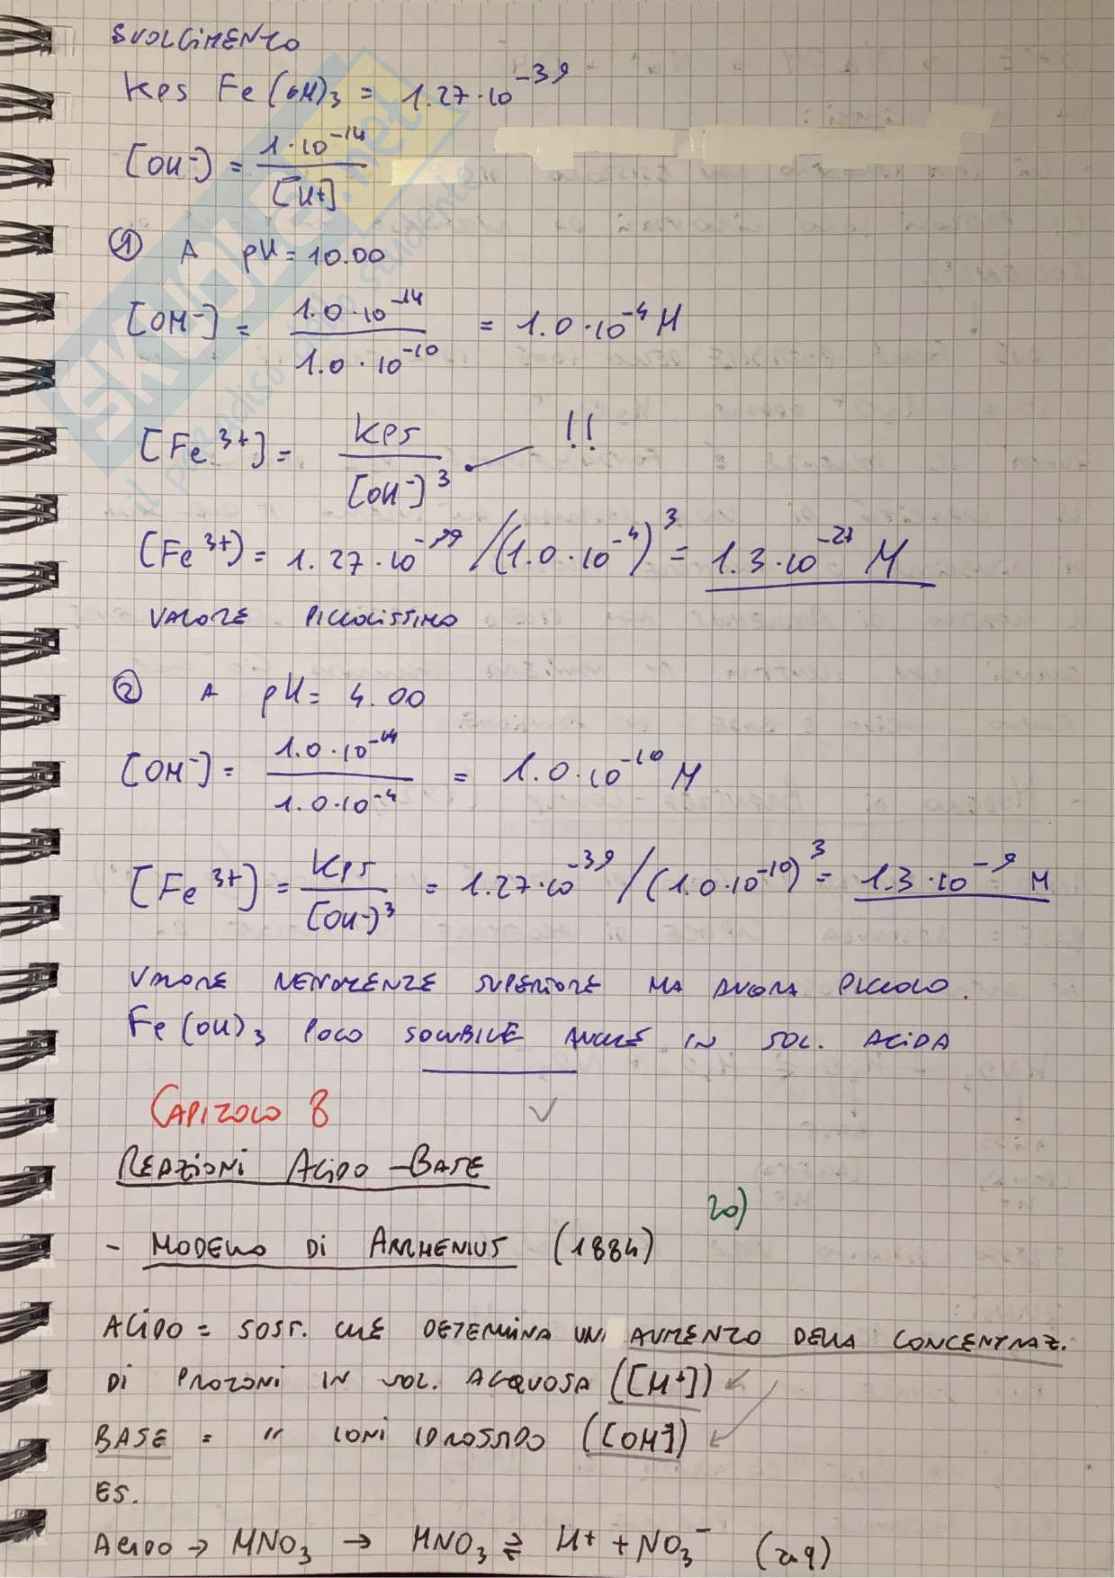 SVOLGIMENTO
Kps Fe(OH)3 = 1.27·10^-39
[OH-] = 1·10^-14 / [H+]
① A pH = 10.00
[OH-] = 1.0·10^-14 / 1.0·10^-10 = 1.0·10^-4 M
[Fe3+] = Kps / [OH-]^3 !!
[Fe3+] = 1.27·10^-39 /(1.0·10^-4)^3 = 1.3·10^-27 M
VALORE PICCOLISSIMO
② A pH = 4.00
[OH-] = 1.0·10^-14 / 1.0·10^-4 = 1.0·10^-10 M
[Fe3+] = Kps / [OH-]^3 = 1.27·10^-39 /(1.0·10^-10)^3 = 1.3·10^-9 M
VALORE SUPERIORE MA ANCORA PICCOLO.
Fe(OH)3 POCO SOLUBILE ANCHE IN SOL. ACIDA
CAPITOLO 8
REAZIONI ACIDO-BASE
20)
- MODELLO DI ARRHENIUS (1884)
ACIDO = SOST. CHE DETERMINA UN AUMENTO DELLA CONCENTRAZ.
DI PROTONI IN SOL. ACQUOSA ([H+])
BASE = " IONI IDROSSIDO ([OH-])
ES.
ACIDO → HNO3 → HNO3 ⇄ H+ + NO3- (aq)
SKUOLA.net